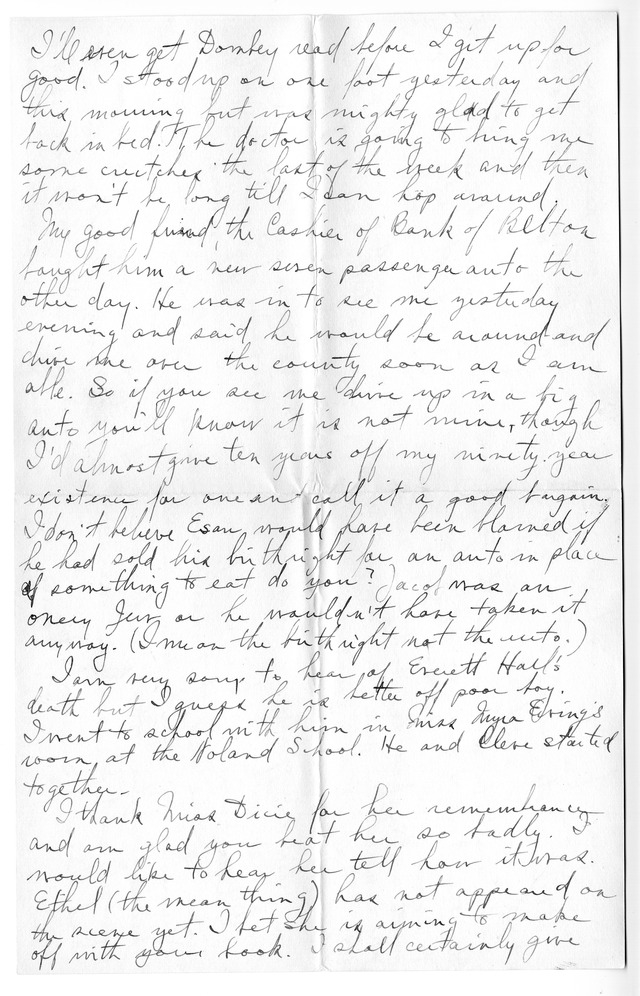 I'll even get Dombey read before I git up for
good. I stood up on one foot yesterday and
this morning but was mighty glad to get
back in bed. The doctor is going to bring me
some crutches the last of the week and then
it won't be long till I can hop around.
My good friend, the Cashier of Bank of Belton
bought him a new seven passenger auto the
other day. He was in to see me yesterday
evening and said he would be around and
drive me over the county soon as I am
able. So if you see me drive up in a big
auto you'll know it is not mine, though
I'd almost give ten years off my ninety year
existence for one and call it a good bargain.
I don't believe Esau would have been blamed if
he had sold his birthright for an auto in place
of something to eat do you? Jacob was an
onery Jew or he wouldn't have taken it
anyway. (I mean the birthright not the auto.)
I am very sorry to hear of Everett Hall's
death but I guess he is better off poor boy.
I went to school with him in Miss Myra Ewing's
room at the Noland School. He and Cleve started
together.
I thank Miss Dicie for her remembrance
and am glad you beat her so badly. I
would like to hear her tell how it was.
Ethel (the mean thing) has not appeared on
the scene yet. I bet she is aiming to make
off with your book. I shall certainly give